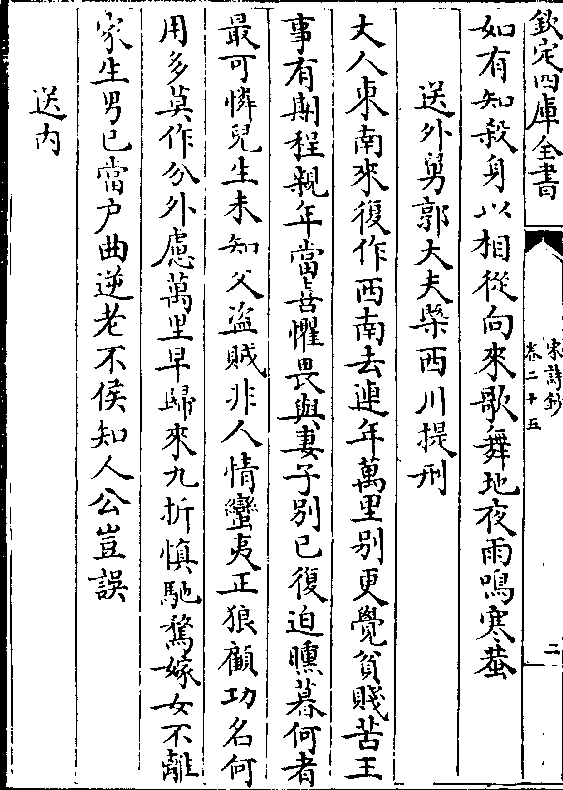 欽定四庫全書
宋詩鈔
卷二十五
二
如有知殺身以相從向來歌舞地夜雨鳴寒蛩
送外舅郭大夫槩西川提刑
大人東南來復作西南去連年萬里別更覺貧賤苦王
事有期程親年當喜懼畏與妻子別已復迫曛暮何者
最可憐兒生未知父盗賊非人情蠻夷正狼顧功名何
用多莫作分外慮萬里早歸來九折慎馳騖嫁女不離
家生男已當户曲逆老不侯知人公豈誤
送内